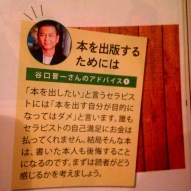 本を出版する
ためには
谷口晋一さんのアドバイス❶
「本を出したい」と言うセラピス
トには「本を出す自分が目的に
なってはダメ」と言います。誰も
セラピストの自己満足にお金は
払ってくれません。結局そんな本
は、書いた本人も後悔すること
になるのです。まずは読者がどう
感じるかを考えましょう。